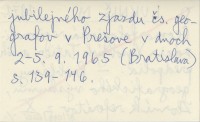 jubilejného zjazdu čs. geo-
grafov v Prešove v dňoch
2-5. 9. 1965 (Bratislava)
s. 139-146.